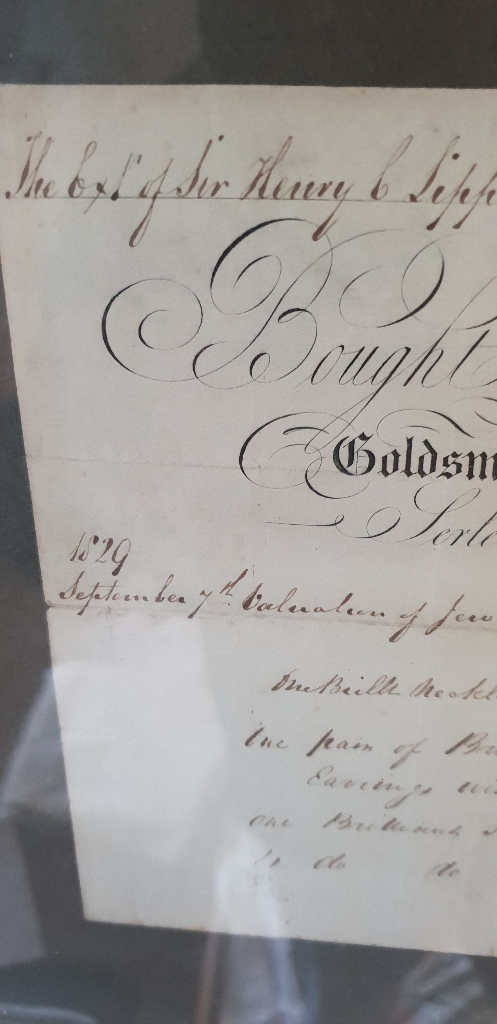 The Exrs of Sir Henry C Lipp
Bought
Goldsm
Serle
1829
September 7th Valuation of Jew
One Brillt Neckl
One pair of Br
Earrings
One Brilliant
do do